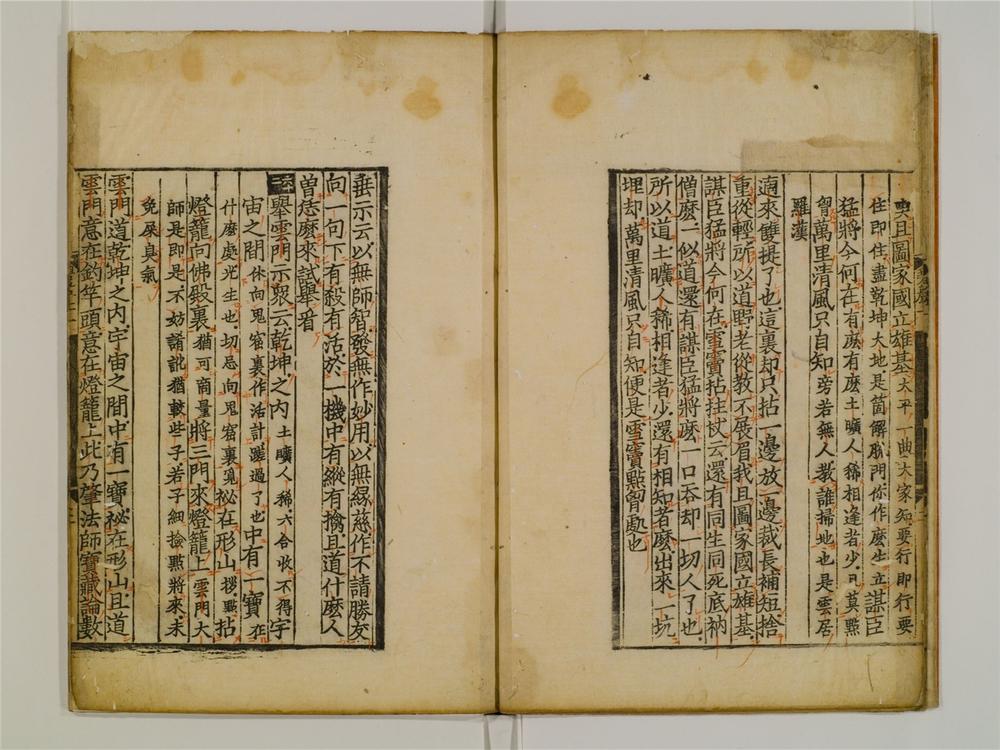 且圖家國立雄基太平一曲大家知要行即行要
住即住盡乾坤大地是箇解脫門你作麼生立謀臣
猛將今何在有麼有麼土曠人稀相逢者少且莫點
胷萬里清風只自知旁若無人教誰掃地也是雲居
羅漢
適來雙提了也這裏却只拈一邊放一邊裁長補短捨
重從輕所以道野老從教不展眉我且圖家國立雄基
謀臣猛將今何在雪竇拈拄杖云還有同生同死底衲
僧麼一似道還有謀臣猛將麼一口吞却一切人了也
所以道土曠人稀相逢者少還有相知者麼出來一坑
埋却萬里清風只自知便是雪竇點胷處也
垂示云以無師智發無作妙用以無緣慈作不請勝友
向一句下有殺有活於一機中有縱有擒且道什麼人
曾恁麼來試舉看
舉雲門示眾云乾坤之內土曠人稀六合收不得宇
宙之間休向鬼窟裏作活計蹉過了也中有一寶在
什麼處光生也切忌向鬼窟裏覓祕在形山拶點拈
燈籠向佛殿裏猶可商量將三門來燈籠上雲門大
師是即是不妨誵訛猶較些子若子細撿點將來未
免屎臭氣
雲門道乾坤之內宇宙之間中有一寶祕在形山且道
雲門意在釣竿頭意在燈籠上此乃肇法師寶藏論數